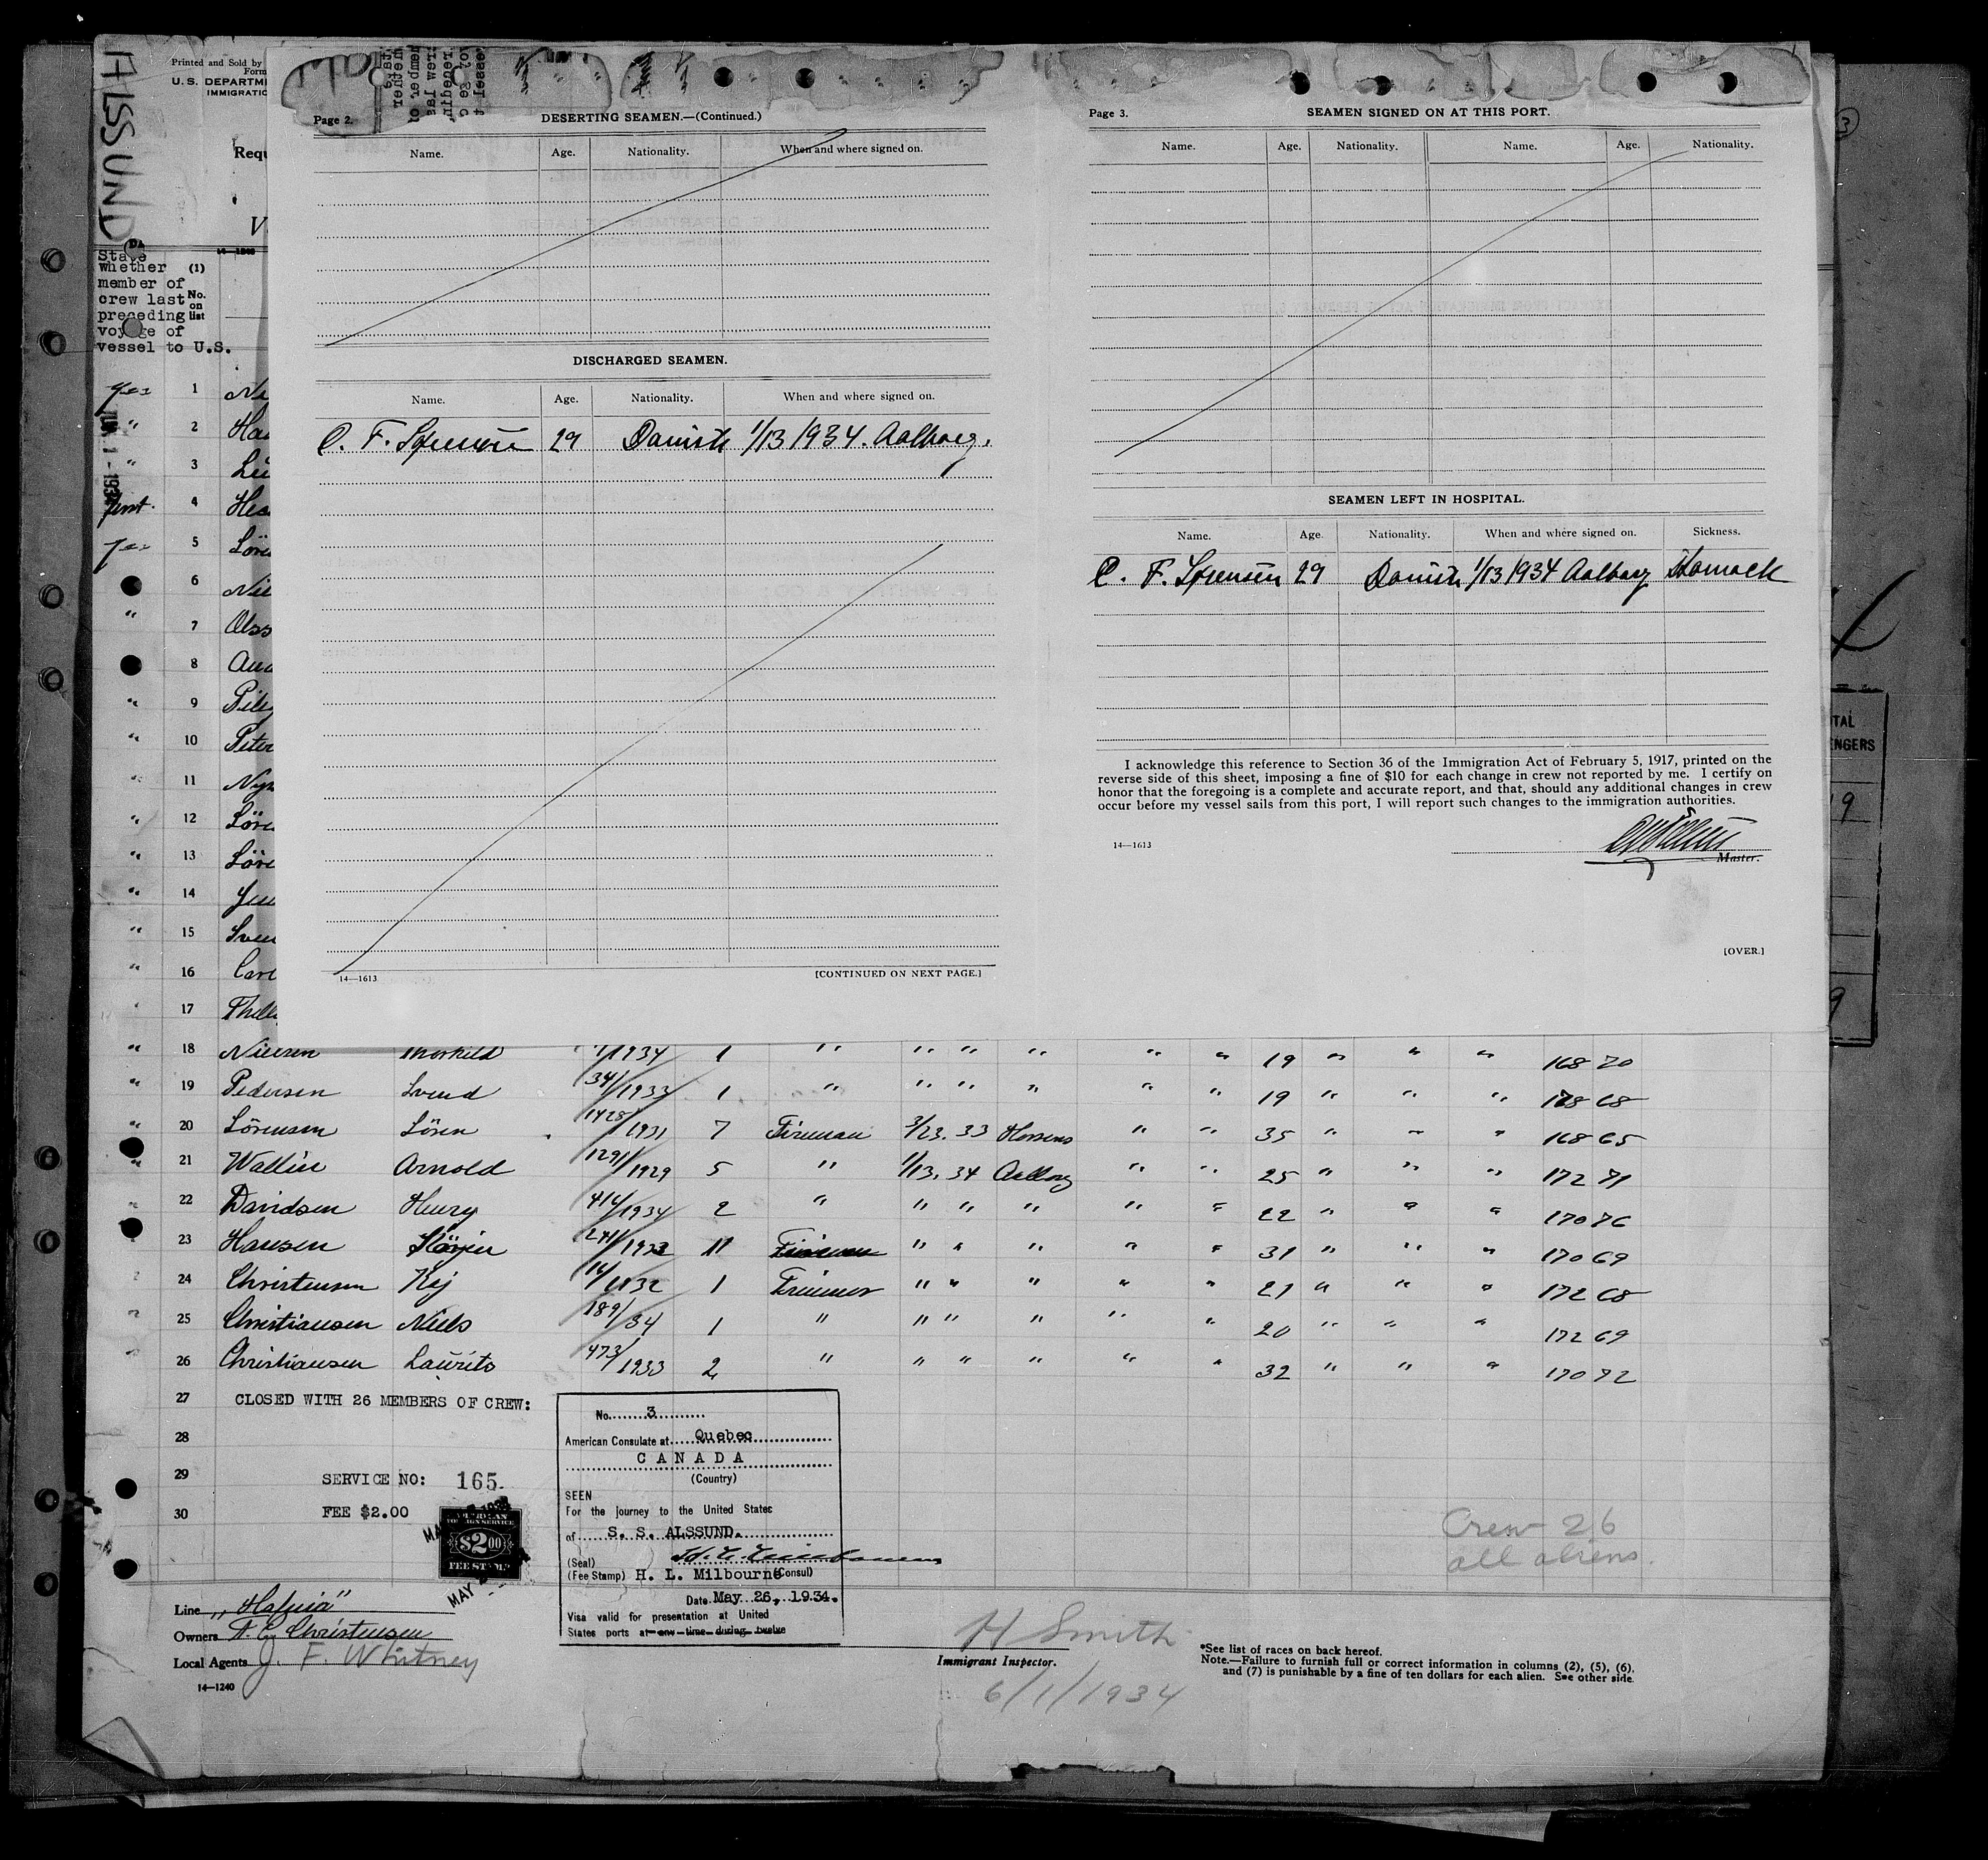 ALSSUND
Printed and Sold by
Form
U.S. DEPARTM
IMMIGRATIO
Requ
V
14—1240
State
whether (1)
member of
crew last No.
preceding on list
voyage of
vessel to U.S.
Page 2.
DESERTING SEAMEN.—(Continued.)
Name. Age. Nationality. When and where signed on.
DISCHARGED SEAMEN.
Name. Age. Nationality. When and where signed on.
C. F. Sørensen 29 Danish 1/13 1934. Aalborg.
14—1613
[CONTINUED ON NEXT PAGE.]
Page 3.
SEAMEN SIGNED ON AT THIS PORT.
Name. Age. Nationality. Name. Age. Nationality.
SEAMEN LEFT IN HOSPITAL.
Name. Age. Nationality. When and where signed on. Sickness.
C. F. Sørensen 29 Danish 1/13 1934 Aalborg Stomack
I acknowledge this reference to Section 36 of the Immigration Act of February 5, 1917, printed on the
reverse side of this sheet, imposing a fine of $10 for each change in crew not reported by me. I certify on
honor that the foregoing is a complete and accurate report, and that, should any additional changes in crew
occur before my vessel sails from this port, I will report such changes to the immigration authorities.
14—1613
Master.
[OVER.]
TAL
NGERS
9
9
yes 1 Ni
" 2 Han
" 3 Lu
JUN 1 - 1934
first 4
yes 5 Söre
6 Niel
" 7 Olss
8 And
" 9 Pile
" 10 Peter
" 11 Nyn
" 12 Söre
" 13 Söre
" 14 Jen
" 15 Sven
" 16 Carl
" 17
" 18 Nielsen Thorkild 1934 1 " " " " " " 19 " " " 168 70
" 19 Pedersen Svend 34/1933 1 " " " " " " 19 " " " 178 68
" 20 Sörensen Sören 1428/1931 7 Fireman 3/23. 33 Horsens " " 35 " " " 168 65
" 21 Wallin Arnold 1291/1929 5 " 1/13. 34 Aalborg " " 25 " " " 172 71
" 22 Davidsen Henry 414/1934 2 " " " " " " 22 " " " 170 76
" 23 Hansen 241/1933 11 Fireman " " " " " 31 " " " 170 69
" 24 Christensen Kaj 16/1932 1 Trimmer " " " " " 21 " " " 172 68
" 25 Christiansen Niels 189/34 1 " " " " " " 20 " " " 172 69
" 26 Christiansen Laurits 473/1933 2 " " " " " " 32 " " " 170 72
27 CLOSED WITH 26 MEMBERS OF CREW:
28
29 SERVICE NO: 165
30 FEE $2.00
AMERICAN
FOREIGN SERVICE
$2.00
FEE STAMP
No. 3
American Consulate at Quebec
CANADA
(Country)
SEEN
For the journey to the United States
of S. S. ALSSUND.
(Seal)
(Fee Stamp) H. L. Milbourne (Consul)
Date May 26, 1934.
Visa valid for presentation at United
States ports at any time during twelve
Crew 26
all aliens.
Line "Hafnia"
Owners A. E. Christensen
Local Agents J. F. Whitney
14—1240
H Smith
Immigrant Inspector.
6/1/1934
*See list of races on back hereof.
Note.—Failure to furnish full or correct information in columns (2), (5), (6),
and (7) is punishable by a fine of ten dollars for each alien. See other side.